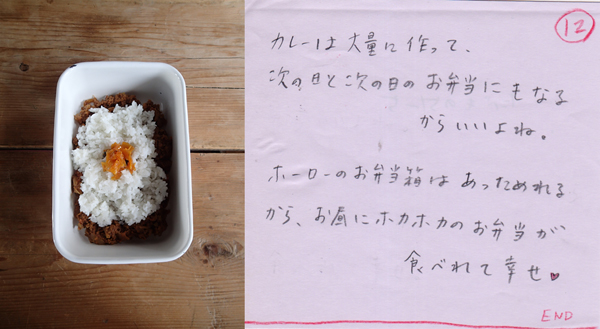 12
カレーは大量に作って、
次の日と次の日のお弁当にもなる
からいいよね。
ホーローのお弁当箱はあっためれる
から、お昼にホカホカのお弁当が
食べれて幸せ♥
END